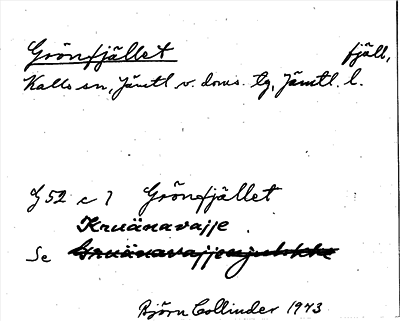 Grönfjället fjäll,
Kalls sn, Jämtl v. doms. tg, Jämtl. l.
J 52 c 7 Grönfjället
Kruänavajje.
Se
Björn Collinder 1973